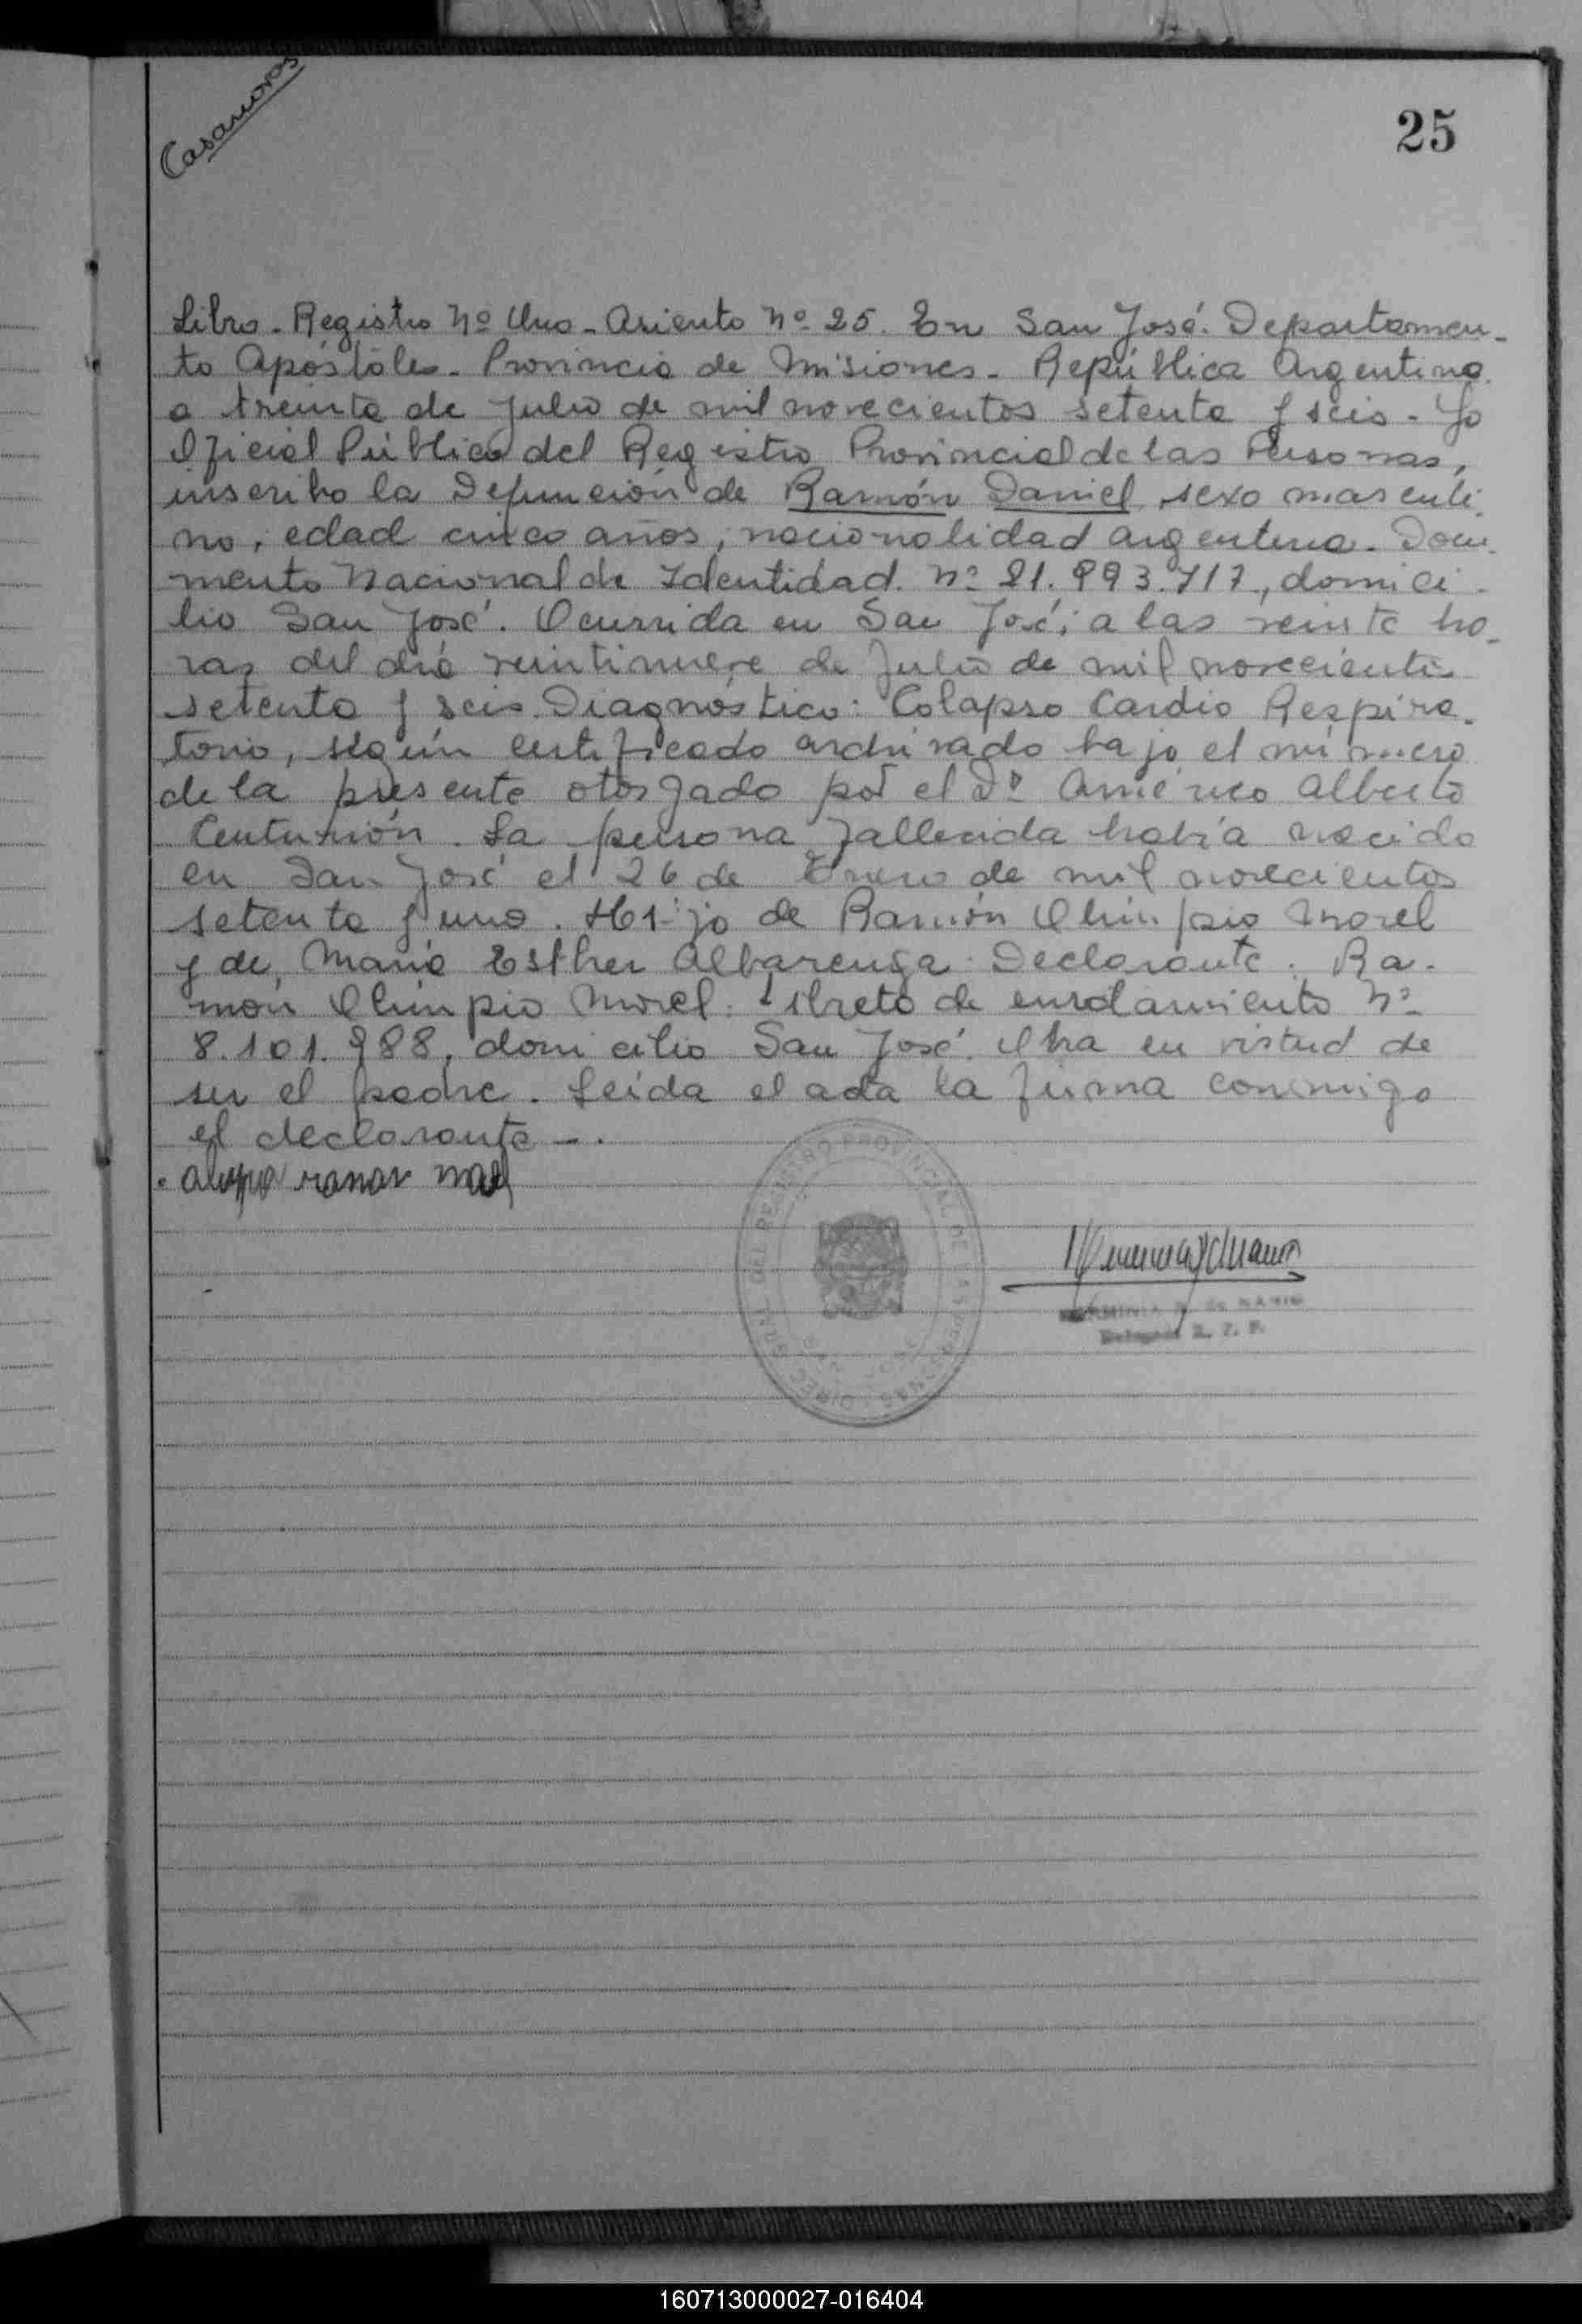 Casanovas
25
Libro-Registro Nº Uno-Asiento Nº 25. En San José. Departamen-
to Apóstoles-Provincia de Misiones-República Argentina
a treinta de Julio de mil novecientos setenta y seis-Yo
Oficial Público del Registro Provincial de las Personas,
inscribo la Defunción de Ramón Daniel, sexo masculi-
no, edad cinco años, nacionalidad argentina. Docu-
mento Nacional de Identidad. nº 21.993.717, domici-
lio San José. Ocurrida en San José, a las veinte ho-
ras del día veintinueve de Julio de mil novecientos
setenta y seis. Diagnóstico: Colapso Cardio Respira-
torio, según certificado archivado bajo el número
de la presente otorgado por el Dr Américo Alberto
Centurión. La persona fallecida había nacido
en San José el 26 de Enero de mil novecientos
setenta y uno. Hijo de Ramón Olimpio Morel
y de María Esther Albarenga. Declarante: Ra-
món Olimpio Morel. Libreta de enrolamiento Nº
8.101.988, domicilio San José. Obra en virtud de
ser el padre. Leída el acta la firma conmigo
el declarante-.
DIREC. GRAL. DEL REGISTRO PROVINCIAL DE LAS PERSONAS
SAN JOSE
Delegada R. P. P.
160713000027-016404